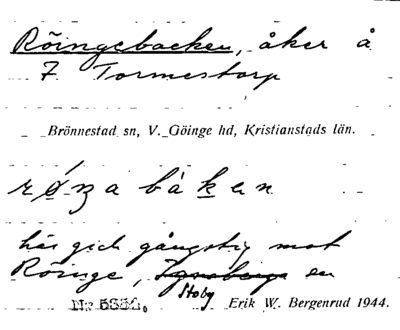 Röingebacken, åker å
7 Tormestorp
Brönnestad sn, V. Göinge hd, Kristianstads län.
røŋa bàken
här gick gångstig mot
Röinge, Ignaberga sn
Stoby
Erik W. Bergenrud 1944.